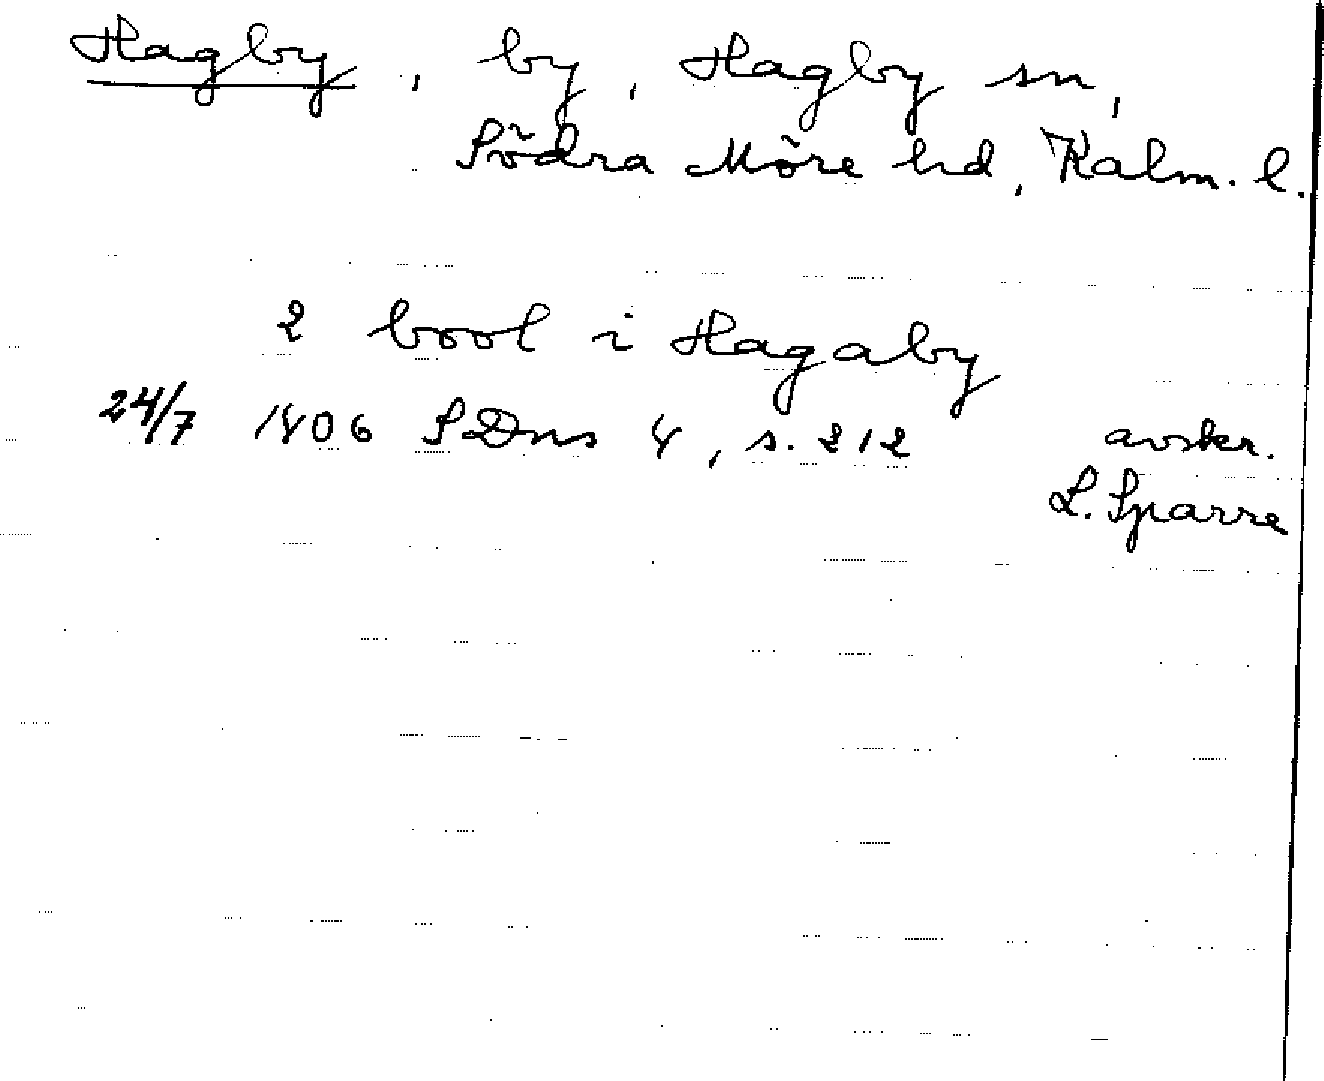 Hagby, by, Hagby sn,
Södra Möre hd, Kalm. l.
2 bool i Hagaby
24/7 1406 SDns 4, s. 212 avskr.
L. Sparre